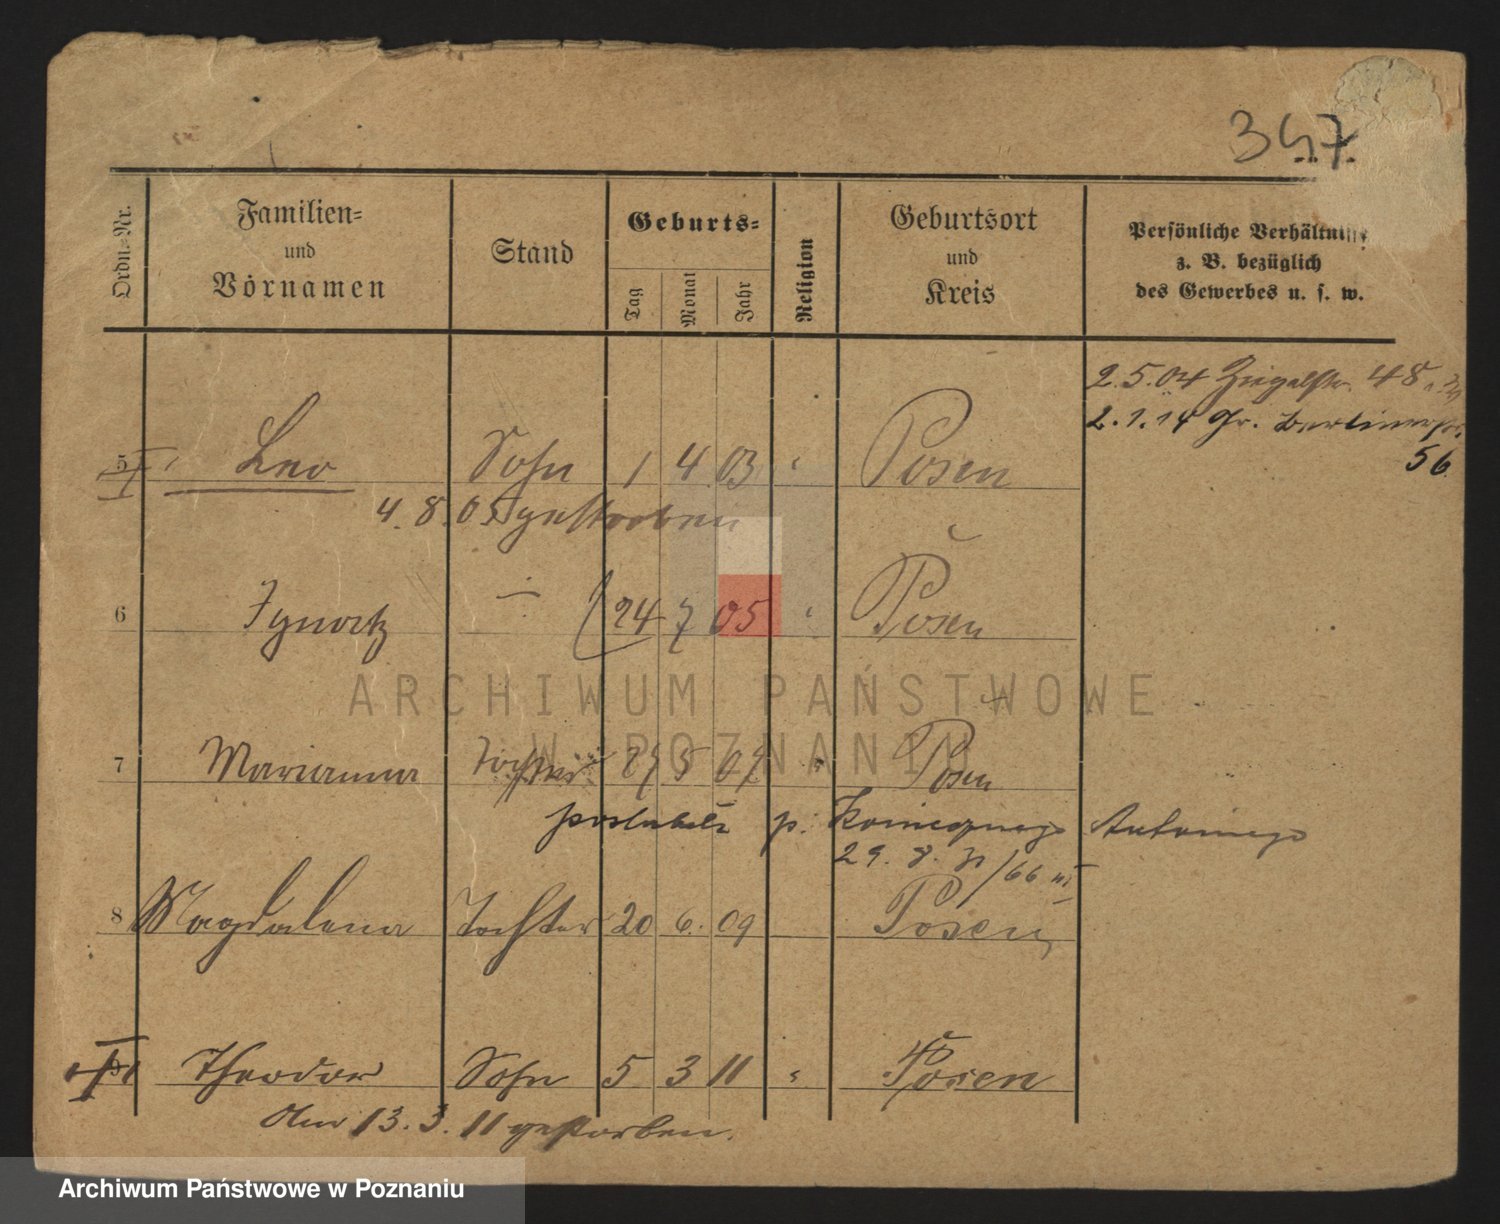 347
Ordn.-Nr.
Familien-
und
Vornamen
Stand
Geburts-
Tag
Monat
Jahr
Religion
Geburtsort
und
Kreis
Persönliche Verhältni
z. B. bezüglich
des Gewerbes u. s. w.
2.5.04 Ziegelstr. 48
2.1.14 Gr. Berlinerstr.
56
5 Leo Sohn 1 4 03 " Posen
4.8.05 gestorben
6 Ignatz — 24 7 05 " Posen
ARCHIWUM PAŃSTWOWE
W POZNANIU
7 Marianna Tochter 29 5 07 " Posen
p. Antoniego
29.8. /66
8 Magdalena Tochter 20 6. 09 Posen
9 Theodor Sohn 5 3 11 " Posen
Am 13.3.11 gestorben.
Archiwum Państwowe w Poznaniu